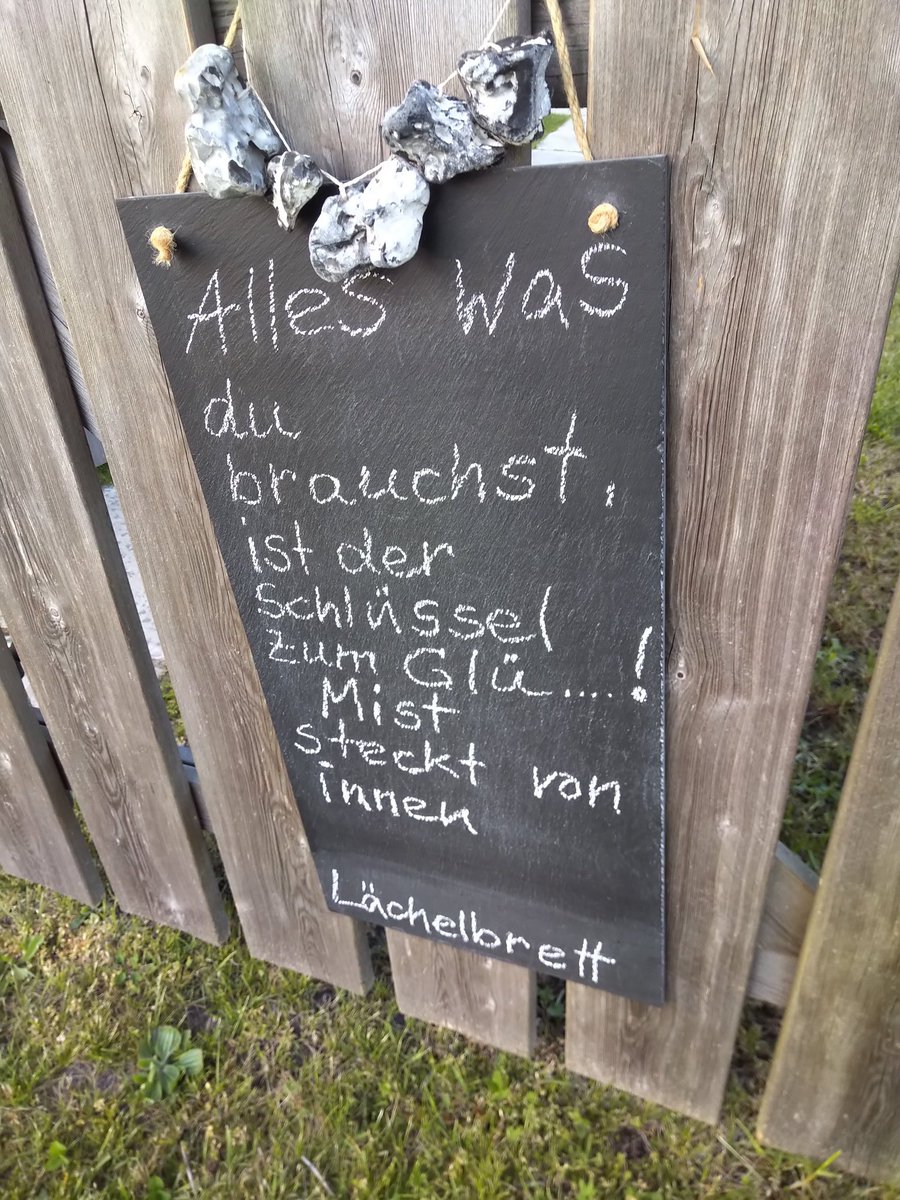 Alles was
du
brauchst,
ist der
Schlüssel
zum Glü....!
Mist
steckt von
innen
Lächelbrett